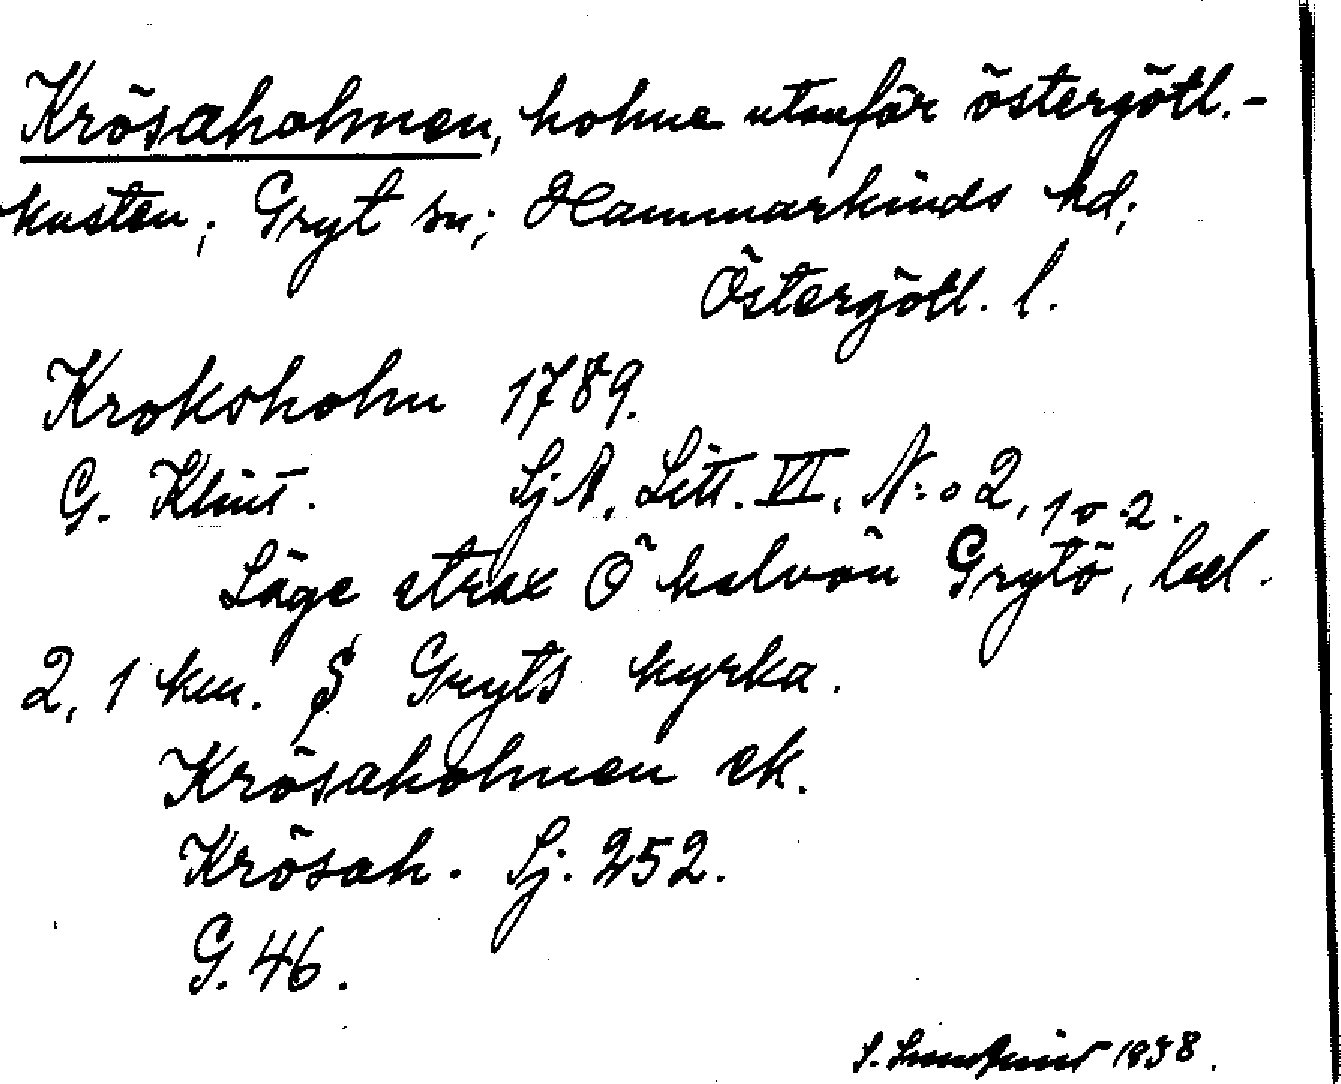 Krösaholmen, holme utanför östergötl.-
kusten; Gryt sn; Hammarkinds hd;
Östergötl. l.
Kroksholm 1789.
G. Klint. SjA, Litt. VI, N:o 2, 1 o 2.
Läge strax Ö halvön Grytö, bel.
2,1 km. S Gryts kyrka.
Krösaholmen ek.
Krösah. Sj. 252.
G. 46.
S. 1938.